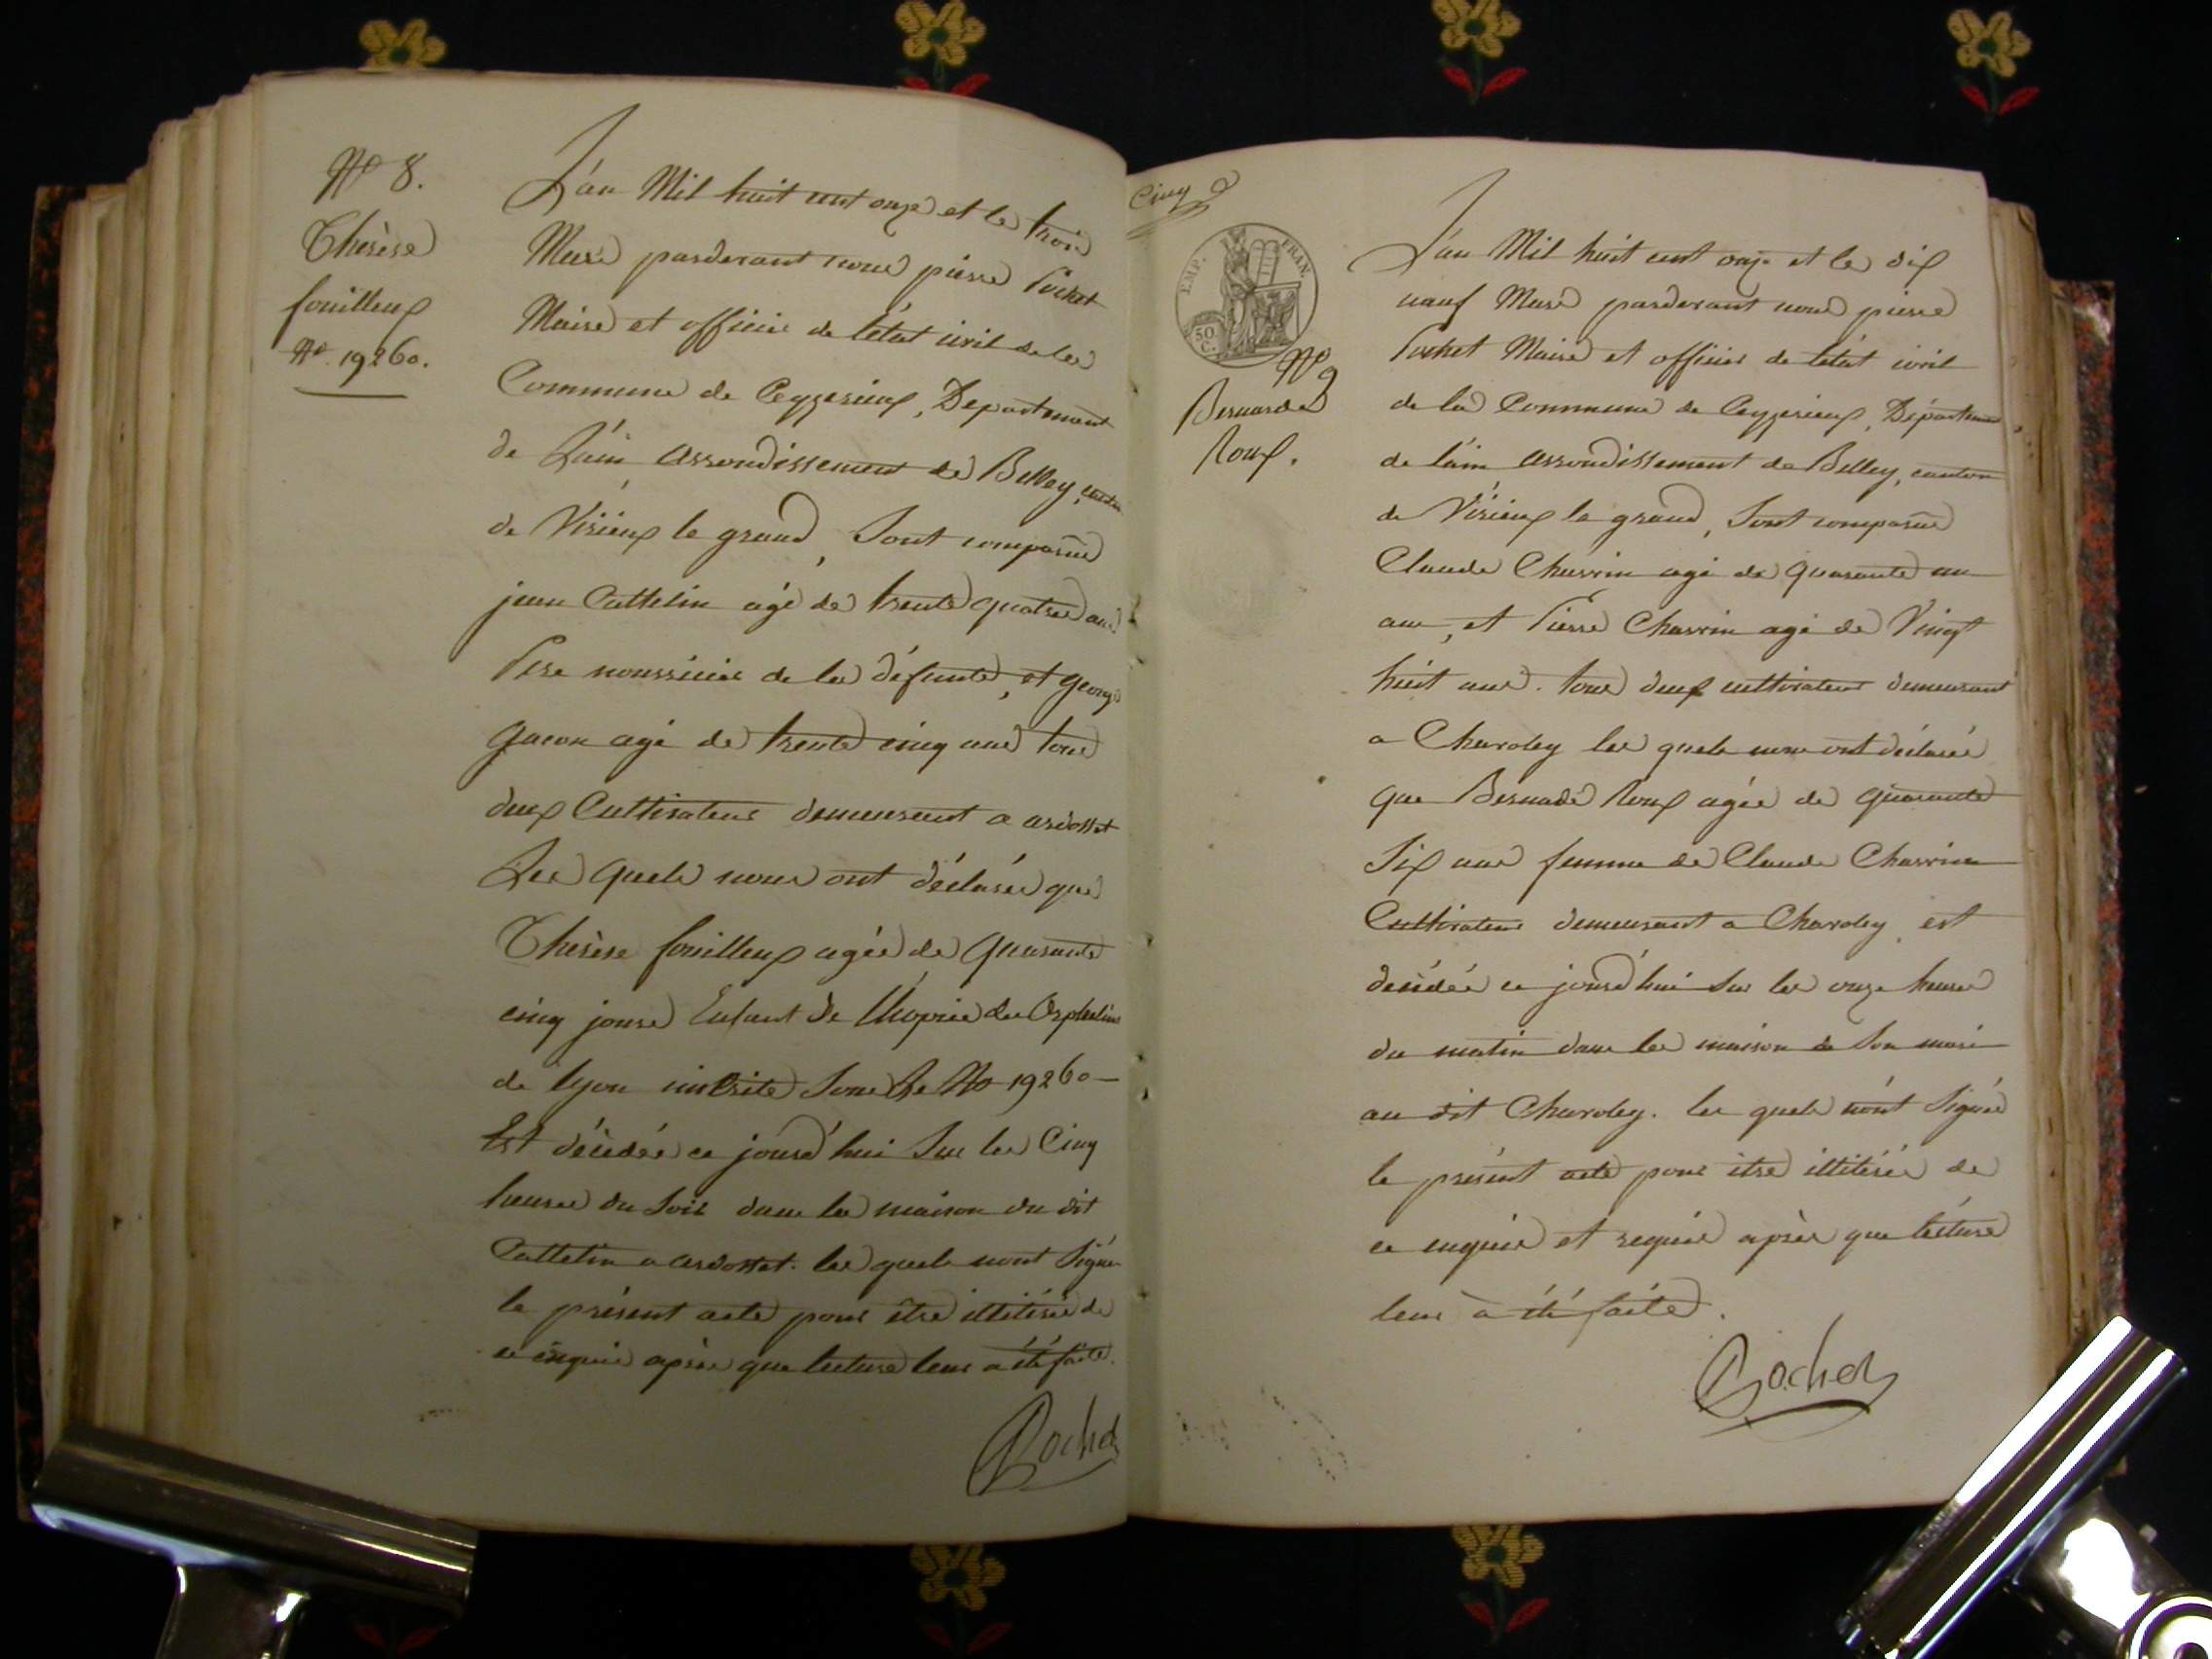 N° 8.
Therèse
fouilleux
N° 19260.
L'an Mil huit cent onze et le trois
Mars pardevant nous pierre Pochet
Maire et officier de l'état civil de la
Commune de Ceyzerieux, Departement
de L'ain arrondissement de Belley, canton
de Virieux le grand, Sont comparus
jean Cattelin agé de trente quatre ans
Pere nourricier de la défunte, et george
gacon agé de trente cinq ans tous
deux Cultivateurs demeurant a ardosset
Les quels nous ont déclarés que
Therèse fouilleux agée de quarante
cinq jours Enfant de l'hopice des Orphelins
de lyon inscrite Sous Le No 19260
Est décédée ce jourd'hui Sur les Cinq
heures du Soir dans la maison du dit
Cattelin a ardosset. les quels n'ont Signé
le présent acte pour être illitérés de
ce enquis après que lecture leur a été faite.
Pochet
Cinq
EMP. FRAN.
50 C.
N° 9
Bernarde
Roux.
L'an Mil huit cent onze et le dix
neuf Mars pardevant nous pierre
Pochet Maire et officier de l'état civil
de la Commune de Ceyzerieux, Département
de l'ain arrondissement de Belley, canton
de Virieux le grand, Sont comparus
Claude Charvin agé de quarante un
ans, et Pierre Charvin agé de Vingt
huit ans. tous deux cultivateurs demeurant
a Charoley les quels nous ont déclarés
que Bernade Roux agée de quarante
Six ans femme de Claude Charvin
Cultivateur demeurant a Charoley est
décédée ce jourd'hui Sur les onze heures
du matin dans la maison de Son mari
au dit Charoley. les quels n'ont Signés
le présent acte pour être illitérés de
ce enquis et requis après que lecture
leur à été faite.
Pochet